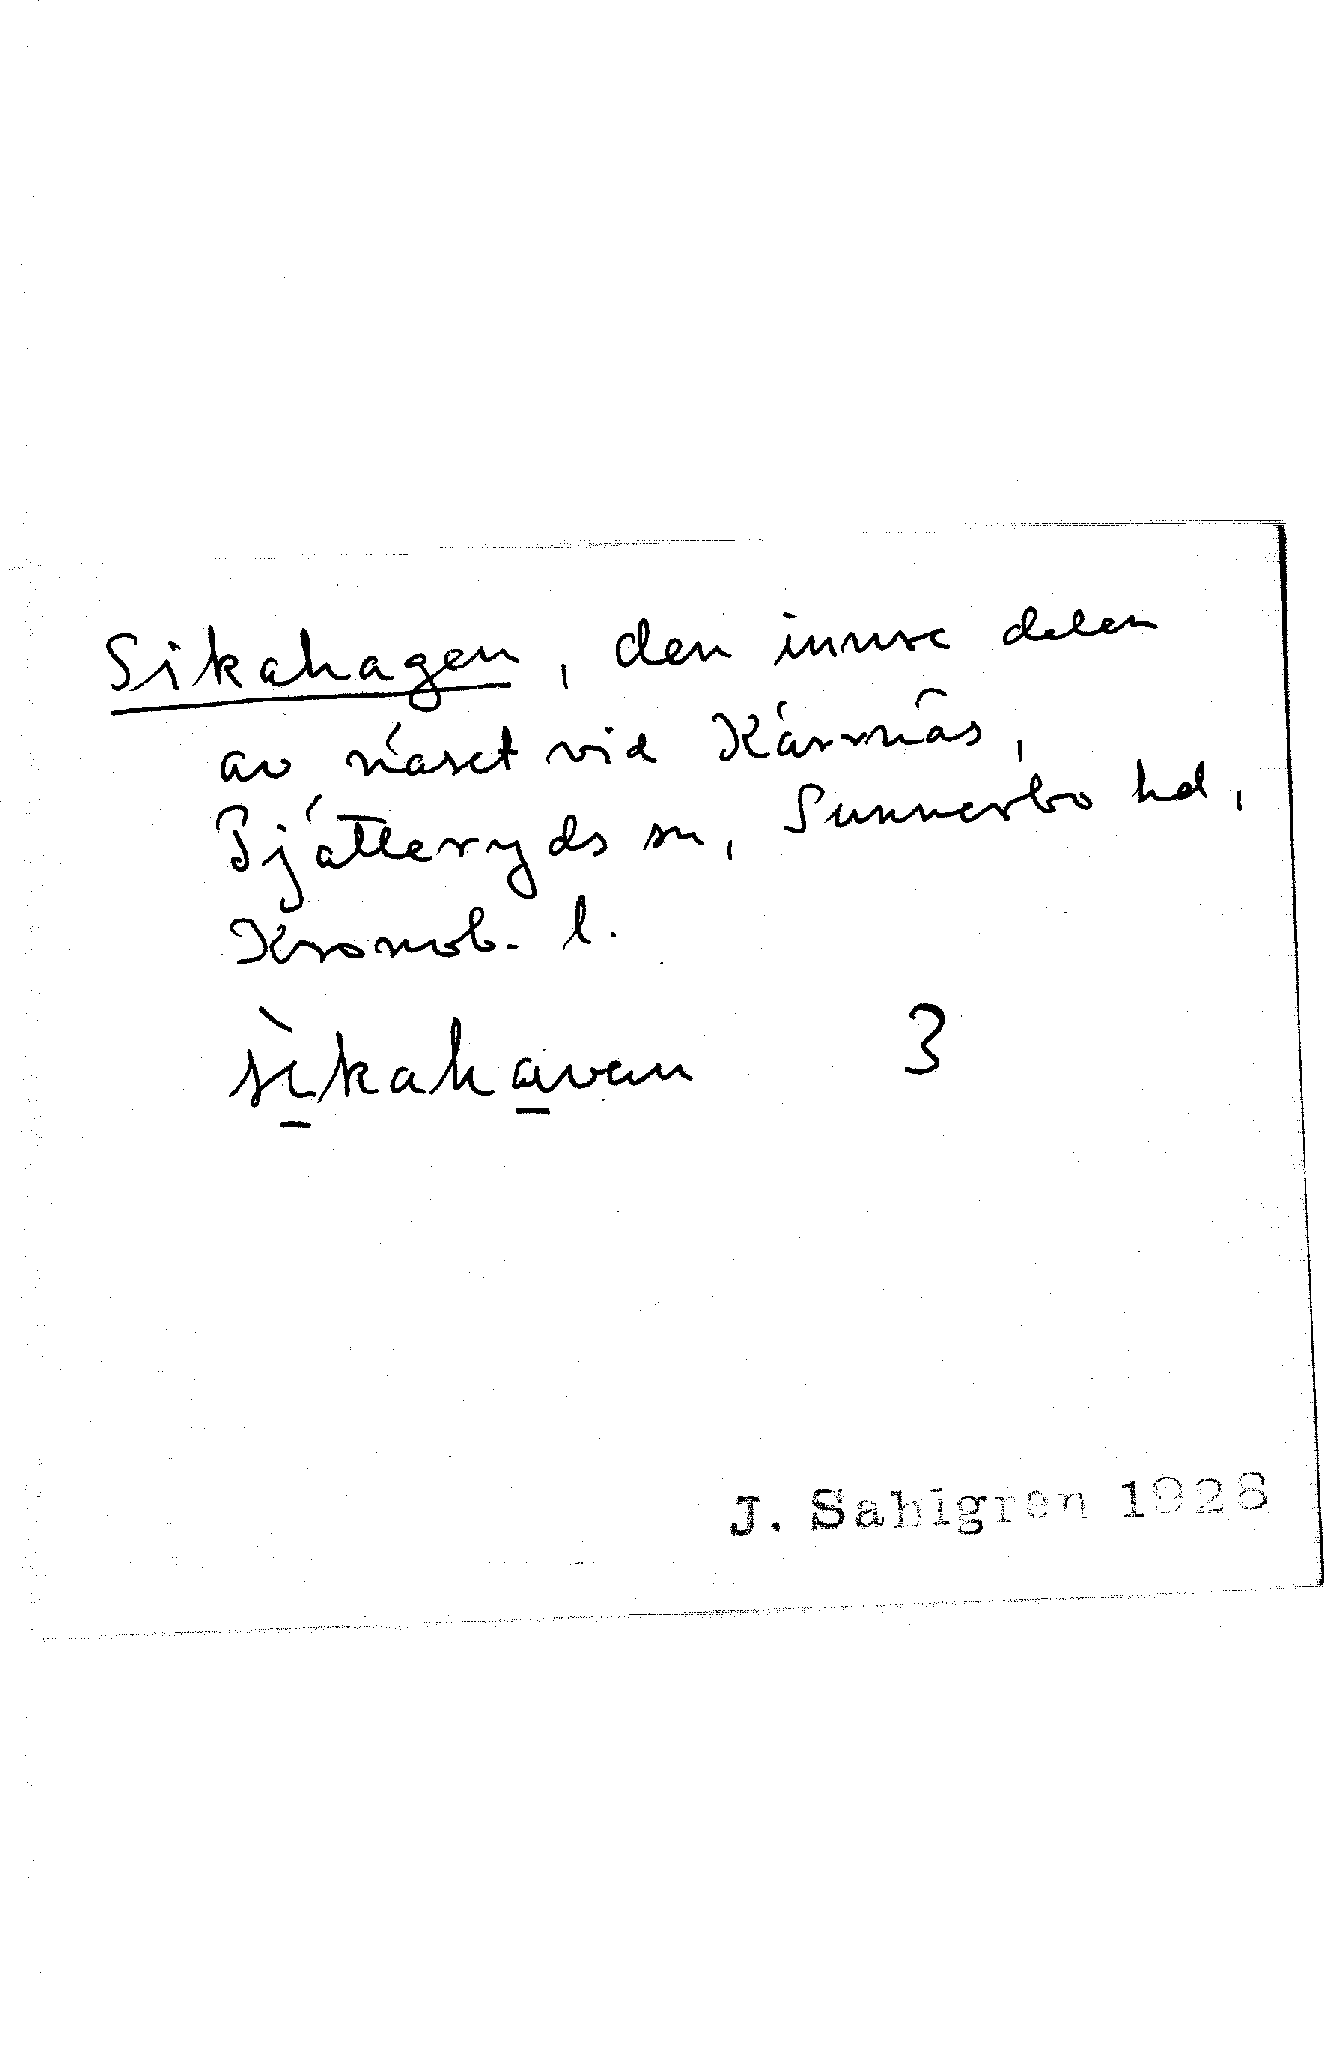 Sikahagen, den inure delen
av näset vid Kärrnäs,
Pjätteryds sn, Sunnerbo hd,
Kronob. l.
sìkahavan 3
J. Sahlgren 1928